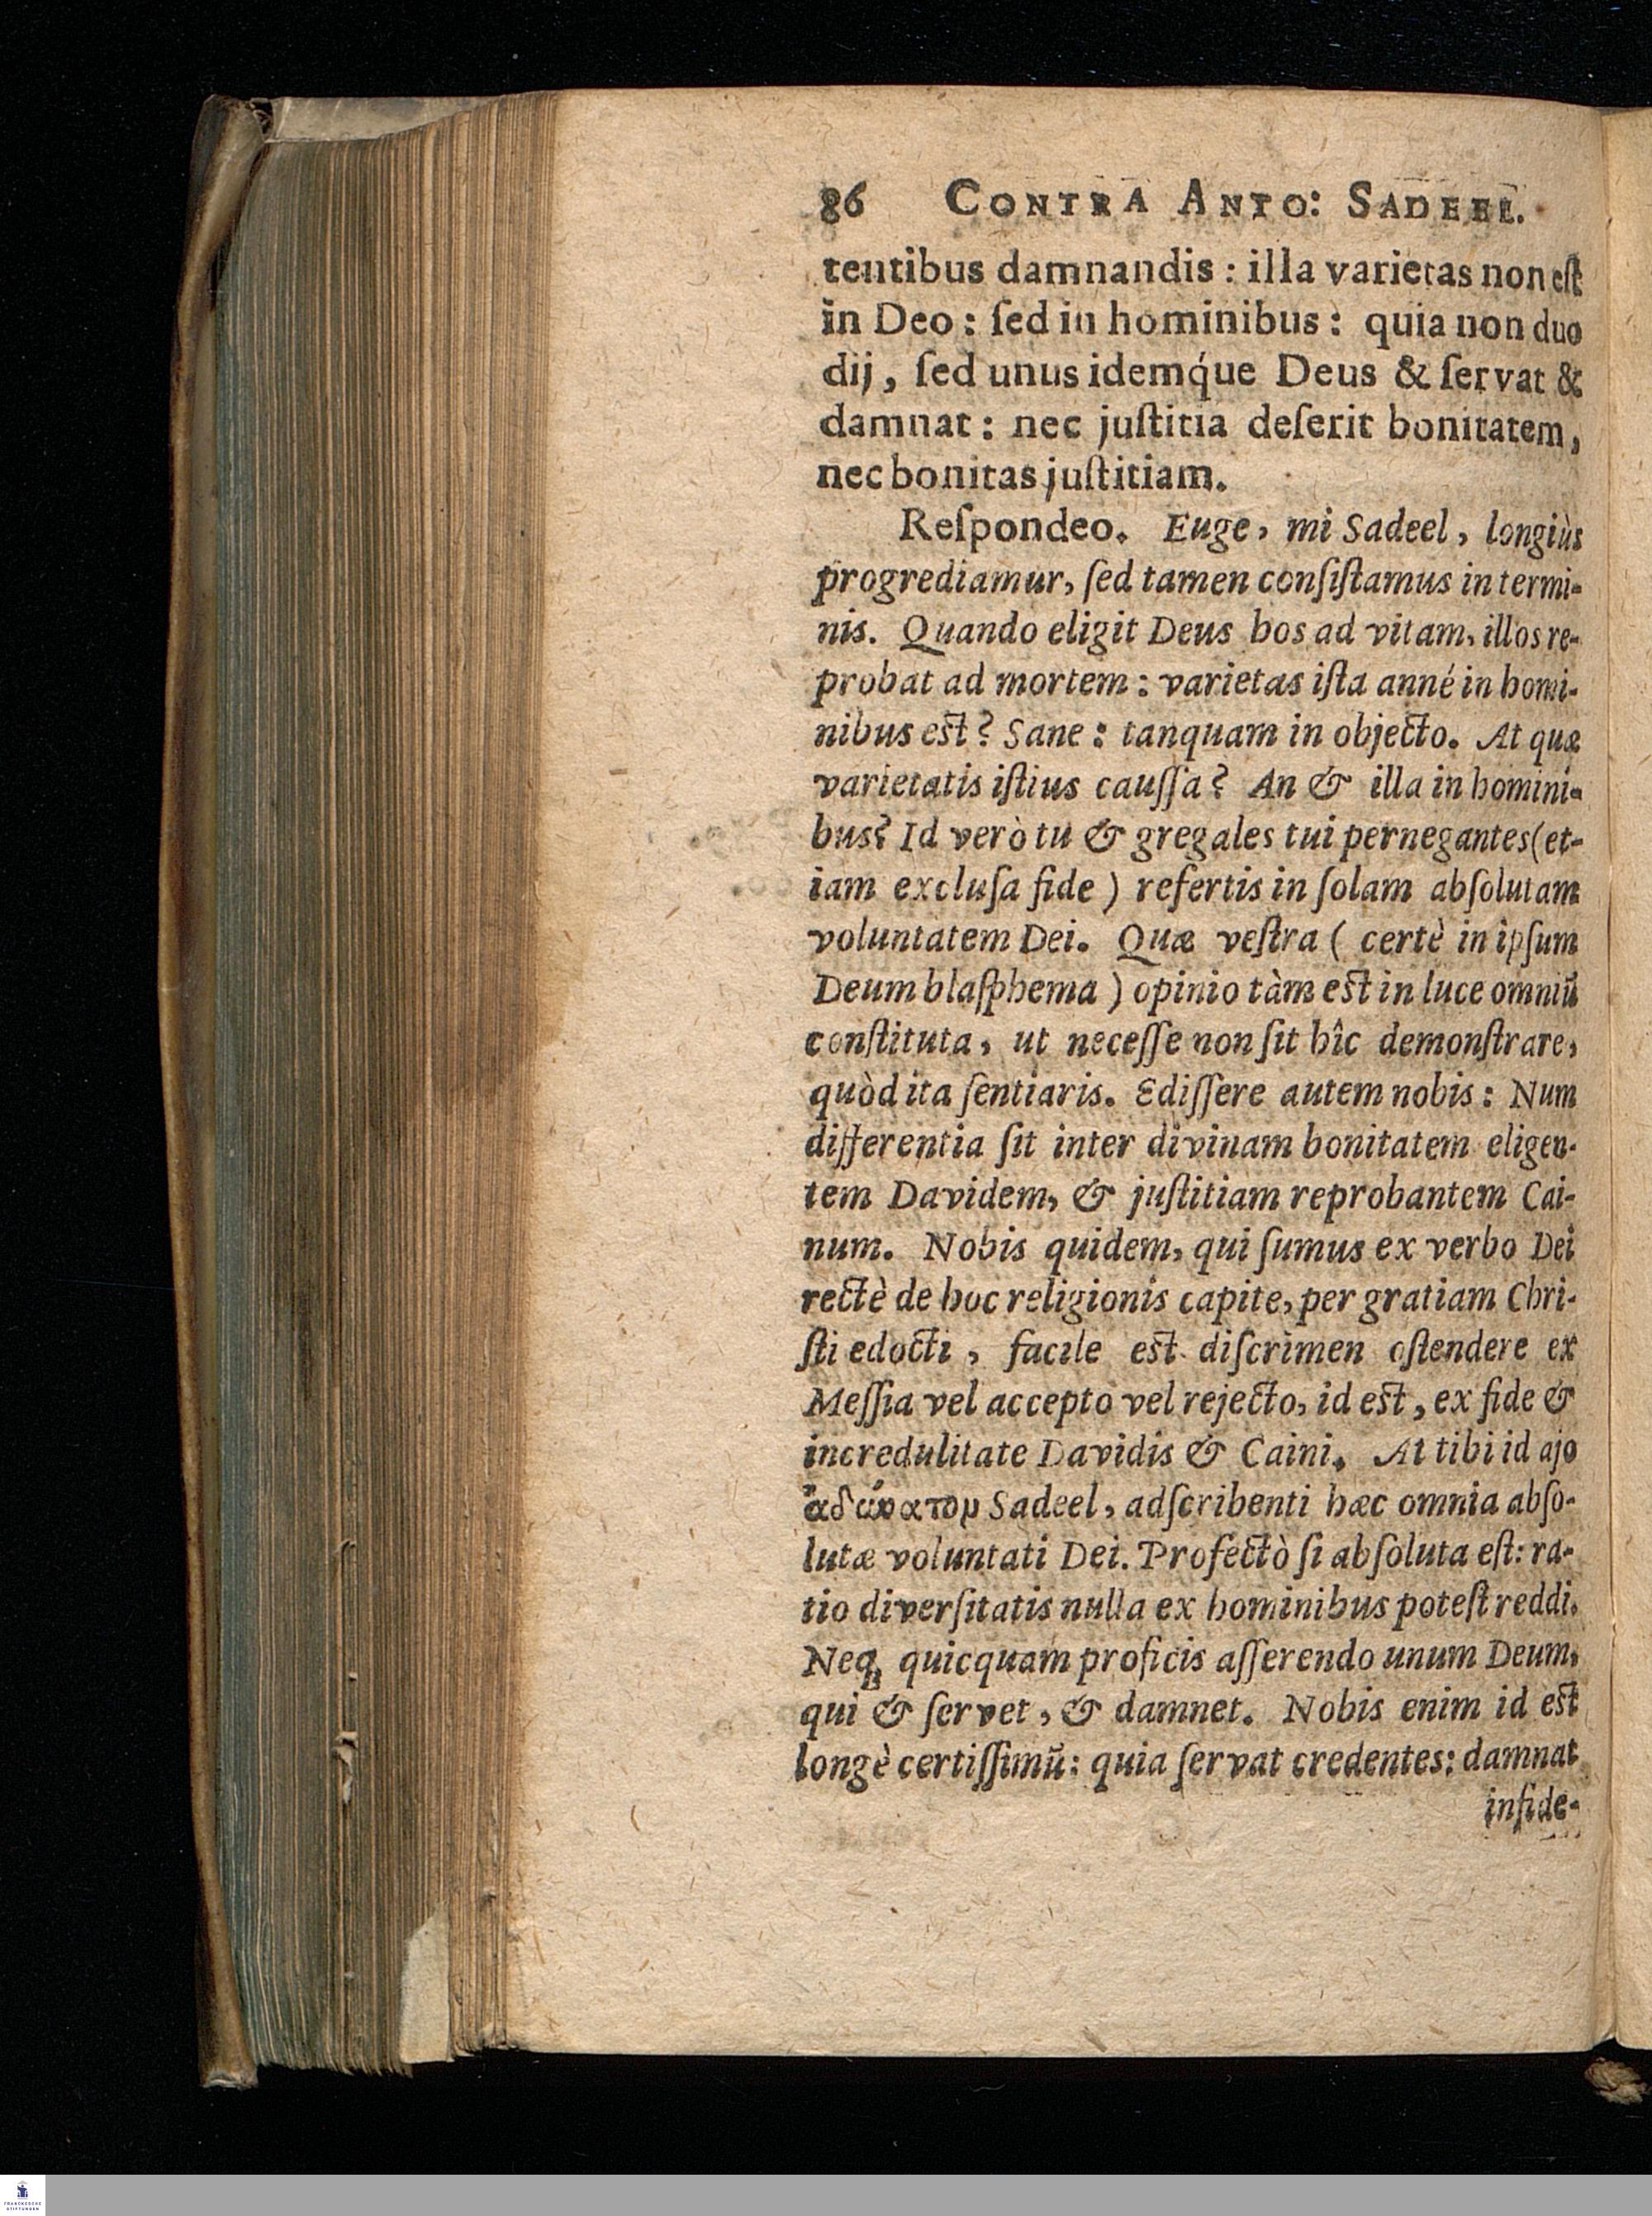 86 CONTRA ANTO: SADEEL.
tentibus damnandis : illa varietas non eſt
in Deo : ſed in hominibus : quia non duo
dij, ſed unus idemq́ue Deus & ſervat &
damnat : nec juſtitia deſerit bonitatem,
nec bonitas juſtitiam.
Reſpondeo. Euge, mi Sadeel, longiùs
progrediamur, ſed tamen conſiſtamus in termi-
nis. Quando eligit Deus hos ad vitam, illos re-
probat ad mortem : varietas iſta anné in homi-
nibus eſt? Sane : tanquam in objecto. At quæ
varietatis iſtius cauſſa? An & illa in homini-
bus? Id verò tu & gregales tui pernegantes (et-
iam excluſa fide) refertis in ſolam abſolutam
voluntatem Dei. Quæ veſtra ( certè in ipſum
Deum blaſphema ) opinio tàm eſt in luce omniū
conſtituta, ut neceſſe non ſit hîc demonſtrare,
quòd ita ſentiaris. Ediſſere autem nobis : Num
differentia ſit inter divinam bonitatem eligen-
tem Davidem, & juſtitiam reprobantem Cai-
num. Nobis quidem, qui ſumus ex verbo Dei
rectè de hoc religionis capite, per gratiam Chri-
ſti edocti, facile eſt diſcrimen oſtendere ex
Meſſia vel accepto vel rejecto, id eſt, ex fide &
incredulitate Davidis & Caini. At tibi id ajo
ἀδύνατομ Sadeel, adſcribenti hæc omnia abſo-
lutæ voluntati Dei. Profectò ſi abſoluta eſt: ra-
tio diverſitatis nulla ex hominibus poteſt reddi.
Neq; quicquam proficis aſſerendo unum Deum,
qui & ſervet, & damnet. Nobis enim id eſt
longè certiſſimū: quia ſervat credentes: damnat
infide-
FRANCKESCHE
STIFTUNGEN